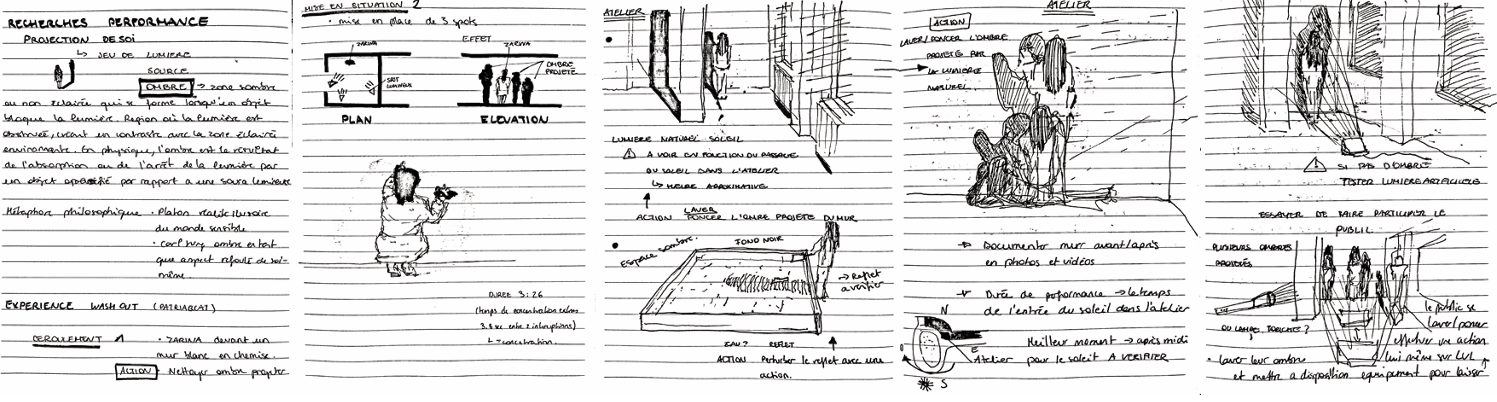 RECHERCHES PERFORMANCE
PROJECTION DE SOI
↳ JEU DE LUMIERE
SOURCE
OMBRE → zone sombre
ou non éclairée qui se forme lorsqu'un objet
bloque la lumière. Region où la lumière est
créant un contraste avec la zone éclairée
En physique, l'ombre est le résultat
de l'absorption ou de l'arrêt de la lumière par
un objet par rapport a une
Métaphore philosophique • Platon réalité illusoire
du monde sensible
• Carl Jung ombre en tant
que aspect refoulé de soi-
même
EXPERIENCE WASH OUT
DEROULEMENT 1
• ZARINA devant un
mur blanc en chemise.
ACTION Nettoyer ombre projeter
MISE EN SITUATION 2
• mise en place de 3 spots
ZARINA
SPOT
LUMINEUX
PLAN
EFFET
ZARINA
OMBRE
PROJETÉ
ELEVATION
DUREE 3:26
(temps de concentration
entre 2 interruptions)
concentration
ATELIER
LUMIERE NATUREL SOLEIL
⚠ A VOIR EN FONCTION DU PASSAGE
DU SOLEIL DANS L'ATELIER
↳ HEURE APROXIMATIVE
LAVER
ACTION PONCER L'OMBRE PROJETE DU MUR
ESPACE SOMBRE
FOND NOIR
→ Reflet
a verifier
EAU? REFLET
ACTION Perturber le reflet avec une
action.
ATELIER
ACTION
LAVER/PONCER L'OMBRE
PROJETÉ PAR
LA LUMIERE
NATUREL
→ Documenter mur avant/après
en photos et vidéos
Durée de performance → le temps
de l'entrée du soleil dans l'atelier
N
E
O
S
Meilleur moment → après midi
Atelier pour le soleil A VERIFIER
⚠ SI PAS D'OMBRE
TESTER LUMIERE ARTIFICIELLE
ESSAYER DE FAIRE PARTICIPER LE
PUBLIC
PLUSIEURS OMBRES
PROJETÉS
OU LAMPE TORCHE?
le public se
laver/poncer
effectuer une action
lui même sur LUI
• laver leur ombre
et mettre a disposition equipement pour laisser